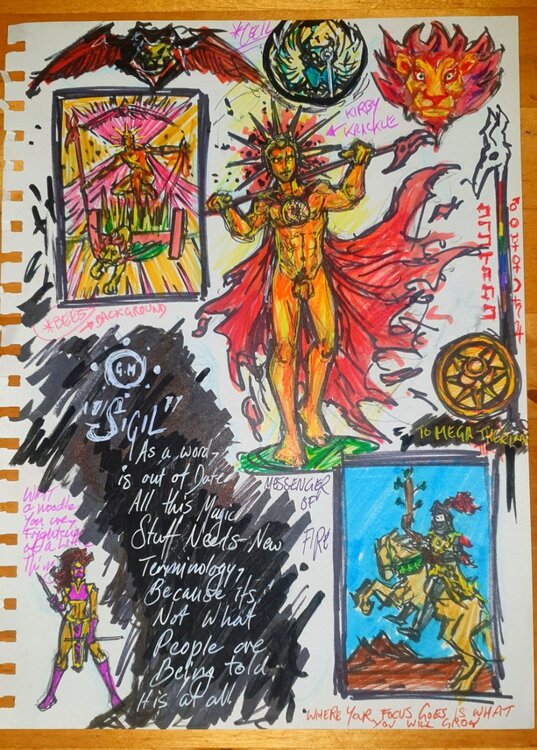 *CECIL
KIRBY
KRACKLE
*BEES
→ BACKGROUND
G.M
"SIGIL"
As a word,
is out of Date
All this Magic
Stuff Needs New
Terminology,
Because its
Not What
People are
Being told
His at all
What
a noodle
You are
Frightened
of a Little
Thing
MESSENGER
OF
FIRE
TO MEGA THERION
WHERE YOUR FOCUS GOES IS WHAT
YOU WILL GROW